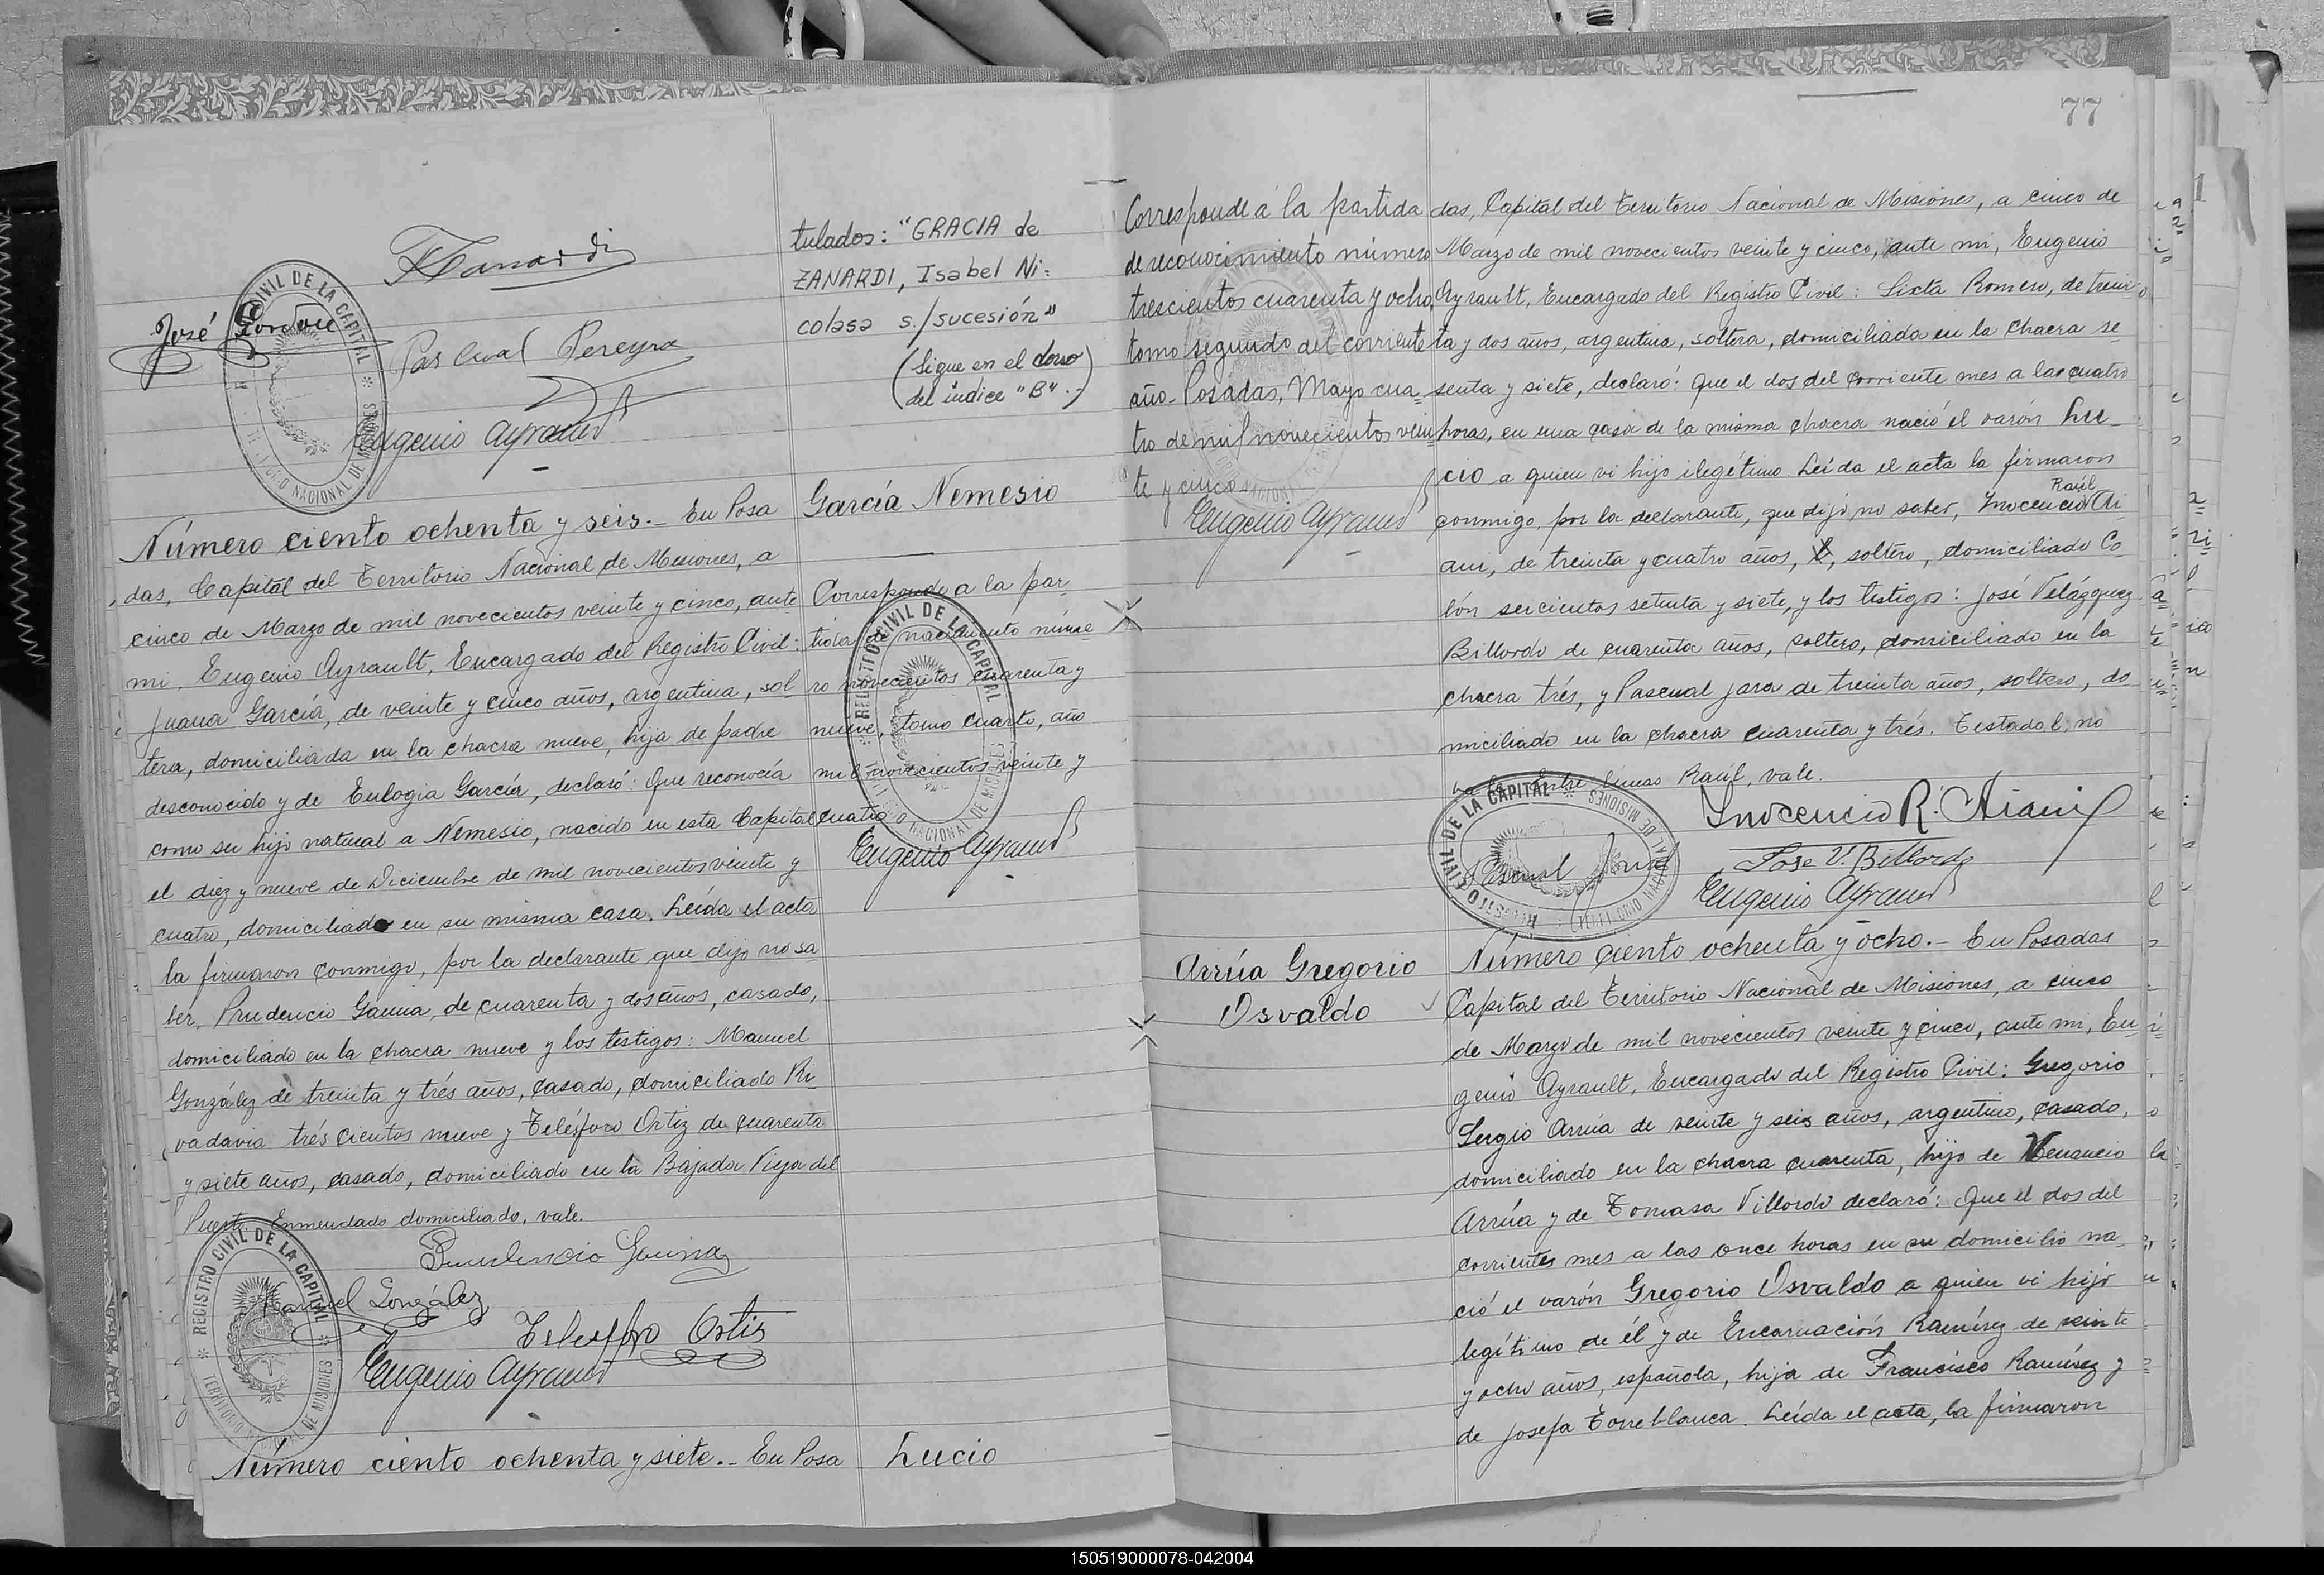 FZanardi
José
Pascual Pereyra
Eugenio Ayrault
REGISTRO CIVIL DE LA CAPITAL
TERRITORIO NACIONAL DE MISIONES
tulados: "GRACIA de
ZANARDI, Isabel Ni=
colasa s./sucesión"
(Sigue en el dorso
del índice "B".-)
Número ciento ochenta y seis.- En Posa
das, Capital del Territorio Nacional de Misiones, a
cinco de Marzo de mil novecientos veinte y cinco, ante
mi, Eugenio Ayrault, Encargado del Registro Civil:
Juana García, de veinte y cinco años, argentina, sol
tera, domiciliada en la chacra nueve, hija de padre
desconocido y de Eulogia García, declaró: Que reconocía
como su hijo natural a Nemesio, nacido en esta Capital
el diez y nueve de Diciembre de mil novecientos veinte y
cuatro, domiciliado en su misma casa. Leída el acta
la firmaron conmigo, por la declarante que dijo no sa
ber, Prudencio Gauna, de cuarenta y dos años, casado,
domiciliado en la chacra nueve y los testigos: Manuel
González de treinta y trés años, casado, domiciliado Ri
vadavia trés cientos nueve y Telésforo Ortiz de cuarenta
y siete años, casado, domiciliado en la Bajada Vieja del
Puerto. Enmendado domiciliado, vale.
Prudencio Gauna
Manuel González
Telesforo Ortis
Eugenio Ayrault
REGISTRO CIVIL DE LA CAPITAL
TERRITORIO NACIONAL DE MISIONES
García Nemesio
Corresponde a la par
tida de nacimiento núme
ro novecientos cuarenta y
nueve, tomo cuarto, año
mil novecientos veinte y
cuatro
Eugenio Ayrault
REGISTRO CIVIL DE LA CAPITAL
TERRITORIO NACIONAL DE MISIONES
Número ciento ochenta y siete.- En Posa
Lucio
77
Corresponde á la partida
de reconocimiento número
trescientos cuarenta y ocho,
tomo segundo del corriente
año. Posadas, Mayo cua=
tro de mil novecientos vein
te y cinco
Eugenio Ayrault
das, Capital del Territorio Nacional de Misiones, a cinco de
Marzo de mil novecientos veinte y cinco, ante mi, Eugenio
Ayrault, Encargado del Registro Civil: Sixta Romero, de trein
ta y dos años, argentina, soltera, domiciliada en la chacra se
senta y siete, declaró: Que el dos del corriente mes a las cuatro
horas, en una casa de la misma chacra nació el varón Lu-
cio a quien vi hijo ilegítimo. Leída el acta la firmaron
Raúl
conmigo, por la declarante, que dijo no saber, Inocencio Ai
ani, de treinta y cuatro años, soltero, domiciliado Co
lón seicientos setenta y siete, y los testigos: José Velázquez
Billordo de cuarenta años, soltero, domiciliado en la
chacra trés, y Pascual Jara de treinta años, soltero, do
miciliado en la chacra cuarenta y trés. Testado l, no
vale. Entre líneas Raúl, vale.
Inocencio R. Aiani
Pascual Jara
Jose V. Billordo
Eugenio Ayrault
REGISTRO CIVIL DE LA CAPITAL
TERRITORIO NACIONAL DE MISIONES
Arrúa Gregorio
Osvaldo
Número ciento ochenta y ocho.- En Posadas
Capital del Territorio Nacional de Misiones, a cinco
de Marzo de mil novecientos veinte y cinco, ante mi, Eu
genio Ayrault, Encargado del Registro Civil: Gregorio
Sergio Arrúa de veinte y seis años, argentino, casado,
domiciliado en la chacra cuarenta, hijo de Venancio
Arrúa y de Tomasa Villordo declaró: Que el dos del
corriente mes a las once horas en su domicilio na
ció el varón Gregorio Osvaldo a quien vi hijo
legítimo de él y de Encarnación Ramírez de veinte
y ocho años, española, hija de Francisco Ramírez y
de Josefa Torreblanca. Leída el acta, la firmaron
150519000078-042004